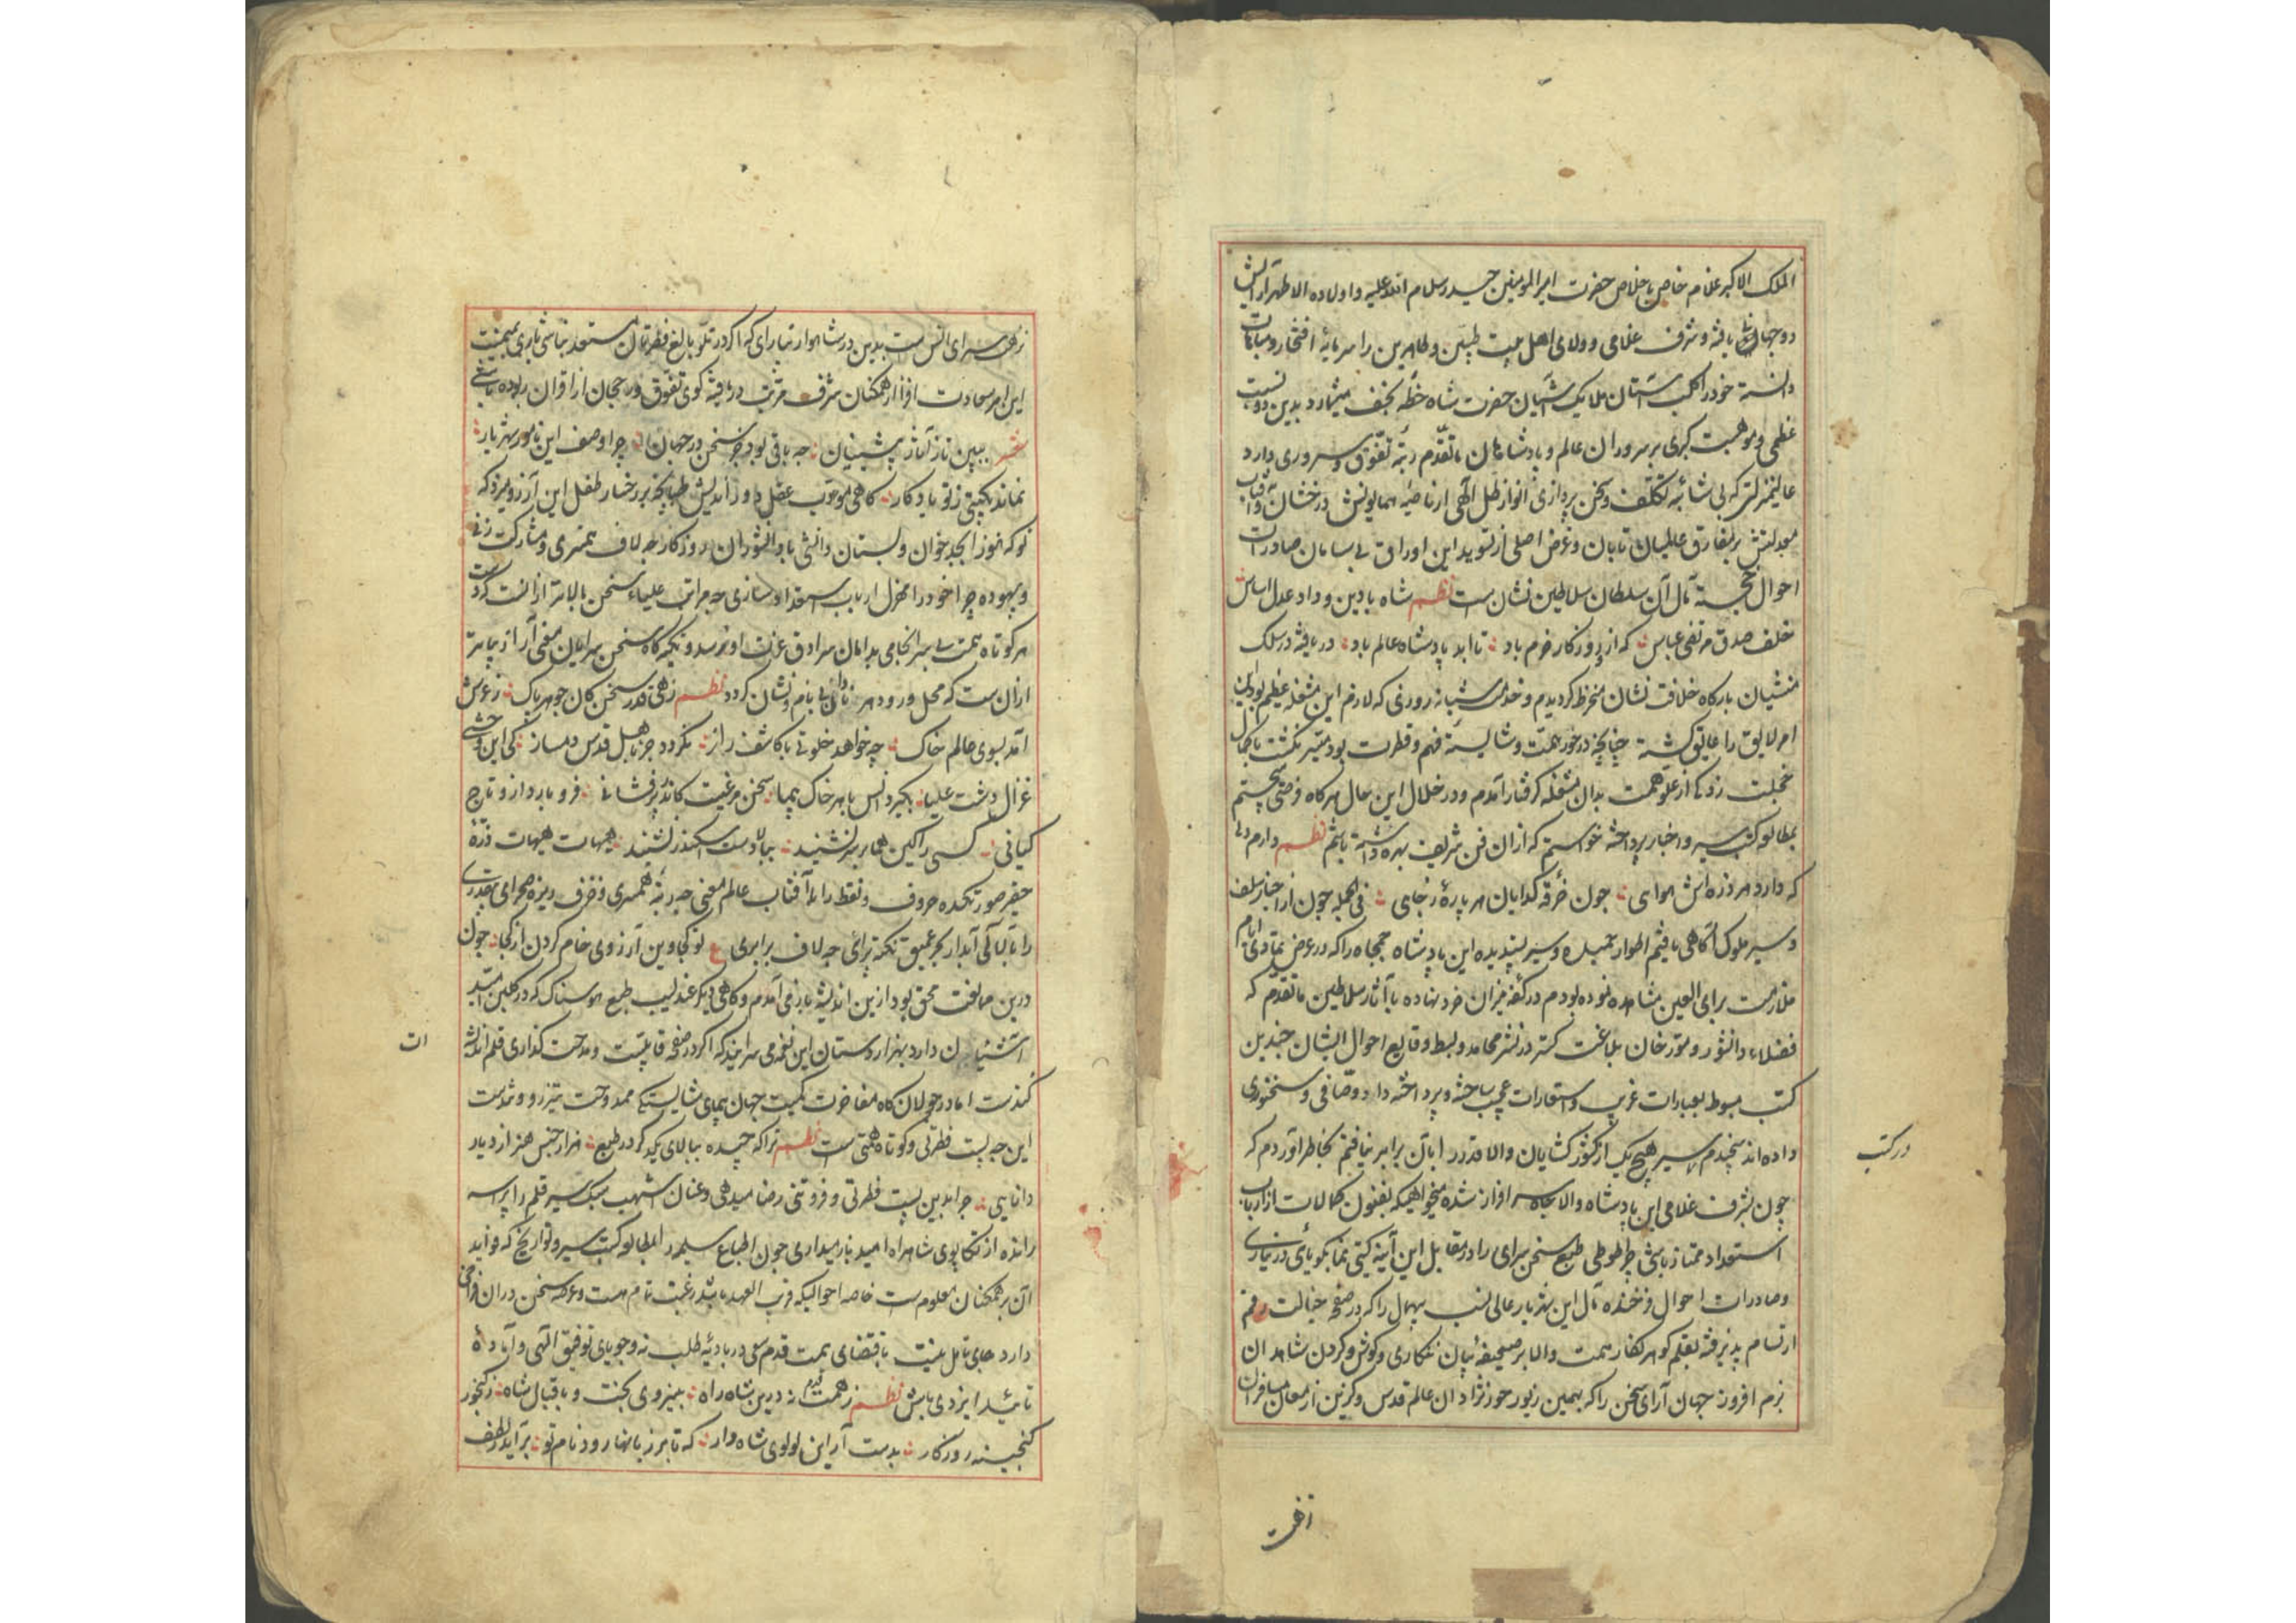 الملک الاکبر غلام خاص باخلاص حضرت امیر المومنین حیدر سلام الله علیه و اولاده الاطهار
دو جهان یافته و شرف غلامی و ولای اهل بیت طیبین و طاهرین را سرمایهٔ افتخار و مباهات
دانسته خود را کلب آستان ملایک آشیان حضرت شاه خطهٔ نجف میشمارد بدین دو نسبت
عظمی و موهبت کبری بر سروران عالم و پادشاهان ماتقدم رتبهٔ تفوق و سروری دارد
عالیمنزلتی که بی شائبهٔ تکلف و سخن پردازی انوار ظل الهی از ناصیهٔ همایونش درخشان و آفتاب
معدلتش بر مفارق عالمیان تابان و غرض اصلی از تسوید این اوراق بی سامان صادرات
احوال خجسته مآل آن سلطان سلاطین نشان ست نظم شاه با دین و داد عدل اساس
خلف صدق مرتضی عباس که ازو روزکار خرم باد تا ابد پادشاه عالم باد دریافته در سلک
منشیان بارکاه خلافت نشان منخرط کردیدم و خدمت شبانه روزی که لازم این مشغلهٔ عظیم بود این
امر لایق را عایق کشته چنانچه در خور همت و شایستهٔ فهم و فطرت بود میسر نکشت با کمال
خجلت زدکی از علو همت بدان مشغله کرفتار آمدم و در خلال این حال هرکاه فرصتی میجستم
بمطالعه کتب سیر و اخبار پرداخته خواستم که ازان فن شریف بهره داشته باشم نظم دارم دلی
که دارد هر ذره اش هوای چون خرقهٔ کدایان هر پاره ز جای فی الجمله چون از اخبار سلف
و سیر ملوک آکاهی یافتم اطوار جمیله و سیر پسندیده این پادشاه جمجاه را که در عرض تمادی ایام
ملازمت برای العین مشاهده نموده بودم در کفهٔ میزان خرد نهاده با آثار سلاطین ماتقدم که
فضلاء دانشور و مورخان بلاغت کستر در نشر محامد و بسط وقایع احوال ایشان چندین
کتب مبسوط بعبارات غریب و استعارات عجیب ساخته و پرداخته داد وصافی و سخنوری
داده اند سنجیدم سیر هیچ یک از کشور کشایان والا قدر را با آن برابر نیافتم بخاطر آوردم که
در کتب
چون بشرف غلامی این پادشاه والا جاه سرافراز شده میخواهی که بفنون کمالات از ارباب
استعداد ممتاز باشی چرا طوطی طبع سخن سرای را در مقابل این آینهٔ کیتی نما بکویائی در نیاری
و صادرات احوال فرخنده مآل این شهریار عالی نسب بیهمال را که در صفحهٔ خیالت رقم
ارتسام پذیرفته بقلم کوهر کفار همت والا بر صحیفهٔ بیان نکاری و کوش و کردن شاهدان
بزم افروز جهان آرای سخن را که بهین زیور حور نژادان عالم قدس و کزین ارمغان مسافران
زهت
نزهت سرای انس ست بدین در شاهوار نیارای که اکر در تلو بالغ فطرتان مستعد نباشی باری بمیمنت
این امر سعادت افزا از همکنان شرف مرتبت دریافته کوی تفوق و رجحان از اقران ربوده باشی
شعر ببین تا ز آثار پیشینیان چه باقی بود جز سخن در جهان چرا وصف این نامور شهریار
نماند بکیتی ز تو یادکار کاهی مودب عقل دور اندیش طپانچه بر رخسار طفل این آرزو میزد که
تو که هنوز ابجد خوان دبستان دانشی با دانشوران روزکار چه لاف همسری و مشارکت زنی
و بیهوده چرا خود را هزل ارباب استعداد سازی چه مراتب علیاء سخن بالاتر از انست که دست
هر کوتاه همت بی سرانجامی بدامان سرادق عزت او رسد و تکیه کاه سخن سرایان معنی آرا ازد پایه تر
ازان ست که محل ورود هر نادان بی نام و نشان کردد نظم زهی قدر سخن کان جوهر پاک ز عرش
آمد بسوی عالم خاک چه خواهد خلوتی با کاشف راز نکردد جز باهل قدس دمساز کی این وحشی
غزال دشت علیا بکیرد انس با هر خاک پیما سخن مرغیست کاندر پرفشانی فرو بارد ازو تاج
کیانی کسی را کین هما بر سر نشیند ببالا دست اسکندر نشیند هیهات هیهات ذرهٔ
حقیر صورتکده حروف و نقط را با آفتاب عالم معنی چه رتبهٔ همسری و خزف ریزه صحرای بیقدری
را با لآلی آبدار بحر عمیق نکته پرائی چه لاف برابری ع تو کجا وین آرزوی خام کردن از کجا چون
درین مبالغت محق بود ازین اندیشه باز می آمدم و کاهی دیکر عندلیب طبع هوسناک که در کلبن امید
آشیان دارد بهزار دستان این نغمه می سراید که اکر در صفحه قابلیت و مدحت کذاری قلم اندیشه
ات
کندست اما در جولان کاه مفاخرت کمیت جهان پیمای شایستکی ممدوحت تیز رو و تندست
این چه پست فطرتی و کوتاه همتی ست نظم تراکه چیده ببالای یکدکر در طبع هزار جنس هنر از دیاد
دانایی چرا بدین پست فطرتی و فروتنی رضا میدهی و عنان اشهب سبک سیر قلم را پراسه
رانده از تکاپوی شاهراه امید باز میداری چون الطباع سلیمه را بمطالعه کتب سیر و تواریخ که فواید
آن بر همکنان معلوم ست خاصه احوالیکه قریب العهد باشد رغبت تمام هست و عرصه سخن دران فراخی
دارد جای تامل نیست باقتضای همت قدم سعی در بادیهٔ طلب نه و جویای توفیق الهی و آمادهٔ
تائید ایزدی باش نظم ز همت قدم نه درین شاه راه بنیروی بخت و باقبال شاه ز کنجور
کنجینه روزکار بدست آر این لولوی شاه وار که تا بر زبانها رود نام تو برآید ز لطف